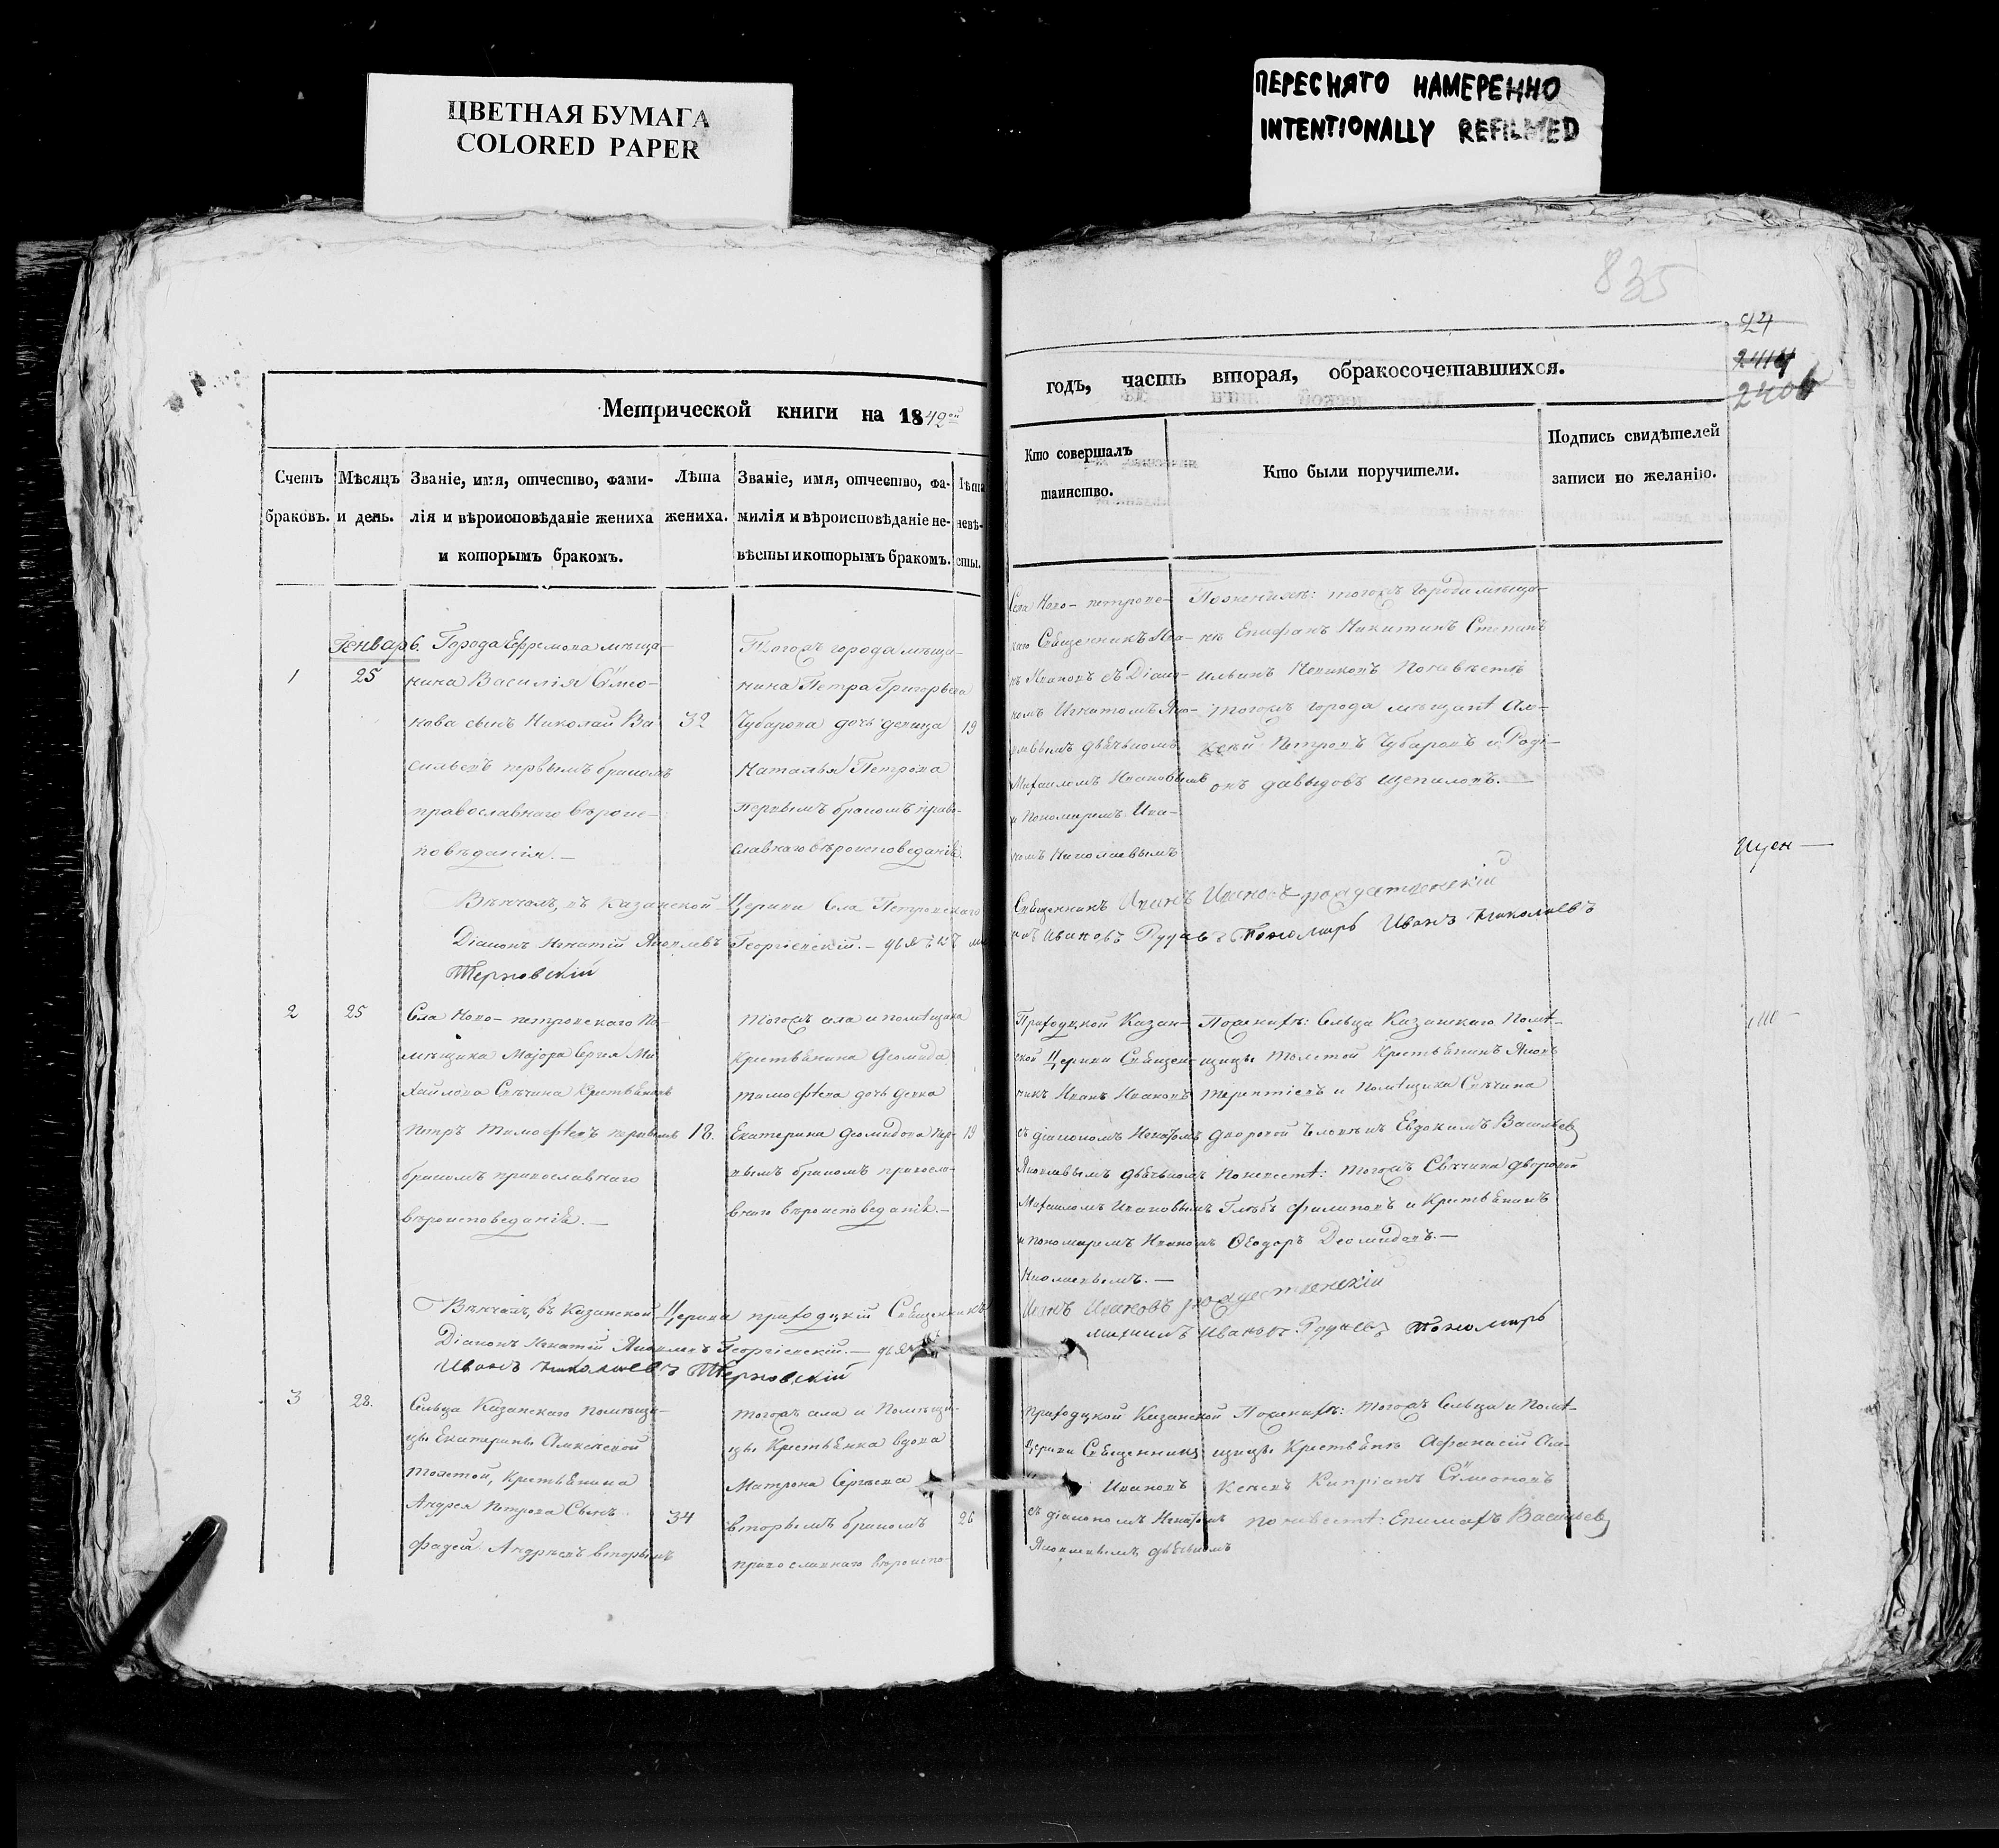 ЦВЕТНАЯ БУМАГА
COLORED PAPER
ПЕРЕСНЯТО НАМЕРЕННО
INTENTIONALLY REFILMED
835
24
2414
2406
Метрической книги на 1842ой
годъ, часть вторая, обракосочетавшихся.
Счетъ браковъ.
Мѣсяцъ и день.
Званіе, имя, отчество, фами-
лія и вѣроисповѣданіе жениха
и которымъ бракомъ.
Лѣта
жениха.
Званіе, имя, отчество, фа-
милія и вѣроисповѣданіе не-
вѣсты и которымъ бракомъ.
Лѣта
невѣ-
сты.
Кто совершалъ
таинство.
Кто были поручители.
Подпись свидѣтелей
записи по желанію.
1
Генварь
25
Города Ефремова мѣща-
нина Василія Сѵмео-
нова сынъ Николай Ва
сильевъ первымъ бракомъ
православнаго вѣроис-
повѣданія.—
32
Тогожъ города мѣща-
нина Петра Григорьева
Чубарова дочь девица
Наталья Петрова
первымъ бракомъ право-
славнаго вѣроисповеданія.
19
Села Ново-петровс-
каго Священникъ Ива-
нъ Ивановъ съ Діако-
номъ Игнатомъ Яко-
влевымъ дьячькомъ
Михаиломъ Ивановымъ
и Пономаремъ Ива-
номъ Николаевымъ
По женихѣ: тогожъ города мѣща-
не Епифанъ Никитинъ Степанъ
Ильинъ По невѣстѣ
тогожъ города мѣщане Але-
ксѣй Петровъ Чубаровъ и Роді-
онъ Давыдовъ Щепиловъ.—
Вѣнчалъ, въ Казанской Церкви Села Петровскаго
Священникъ Иванъ Ивановъ рождественскій
Діаконъ Игнатій Яковлевъ Георгіевскій.—
Ивановъ Рудневъ Пономарь Иванъ Николаевъ
Терновскій
2
25
Села Ново-петровскаго По-
мѣщика Маіора Сергея Ми
хайлова Свѣчина Крестьянинъ
Петръ Тимофеевъ первымъ
бракомъ православнаго
вѣроисповеданія.—
18.
Тогожъ села и помещика
крестьянина Деомида
Тимофеева дочь девка
Екатерина Деомидова пер-
вымъ бракомъ правосла-
внаго вѣроисповеданія.—
19
Приходской Казан-
ской Церкви Священ-
никъ Иванъ Ивановъ
съ діакономъ Игнатомъ
Яковлевымъ дьячькомъ
Михаиломъ Ивановымъ
и пономаремъ Иваномъ
Николаевымъ.—
По женихѣ: Сельца Казанскаго Поме-
щицы Толстой Крестьянинъ Яковъ
Терентіевъ и Помещика Свѣчина
дворовой человекъ Евдокимъ Васильев
По невесте: Тогожъ Свечина дворовой
Глебъ Филиповъ и Крестьянинъ
Ѳеодоръ Деомидовъ.—
Вѣнчалъ, въ Казанской Церкви приходской Священникъ
Иванъ Ивановъ рождественскій
Діаконъ Игнатій Яковлевъ Георгіевскій.—
Михаилъ Ивановъ Рудневъ Пономарь
Иванъ Николаевъ Терновскій
3
28.
Сельца Казанскаго Помѣщи-
цы Екатерины Алексеевой
Толстой, Крестьянина
Андрея Петрова Сынъ
Фадей Андреевъ вторымъ
34
Тогожъ села и Помѣщи-
цы Крестьянка вдова
Матрона Сергеева
вторымъ бракомъ
православнаго вѣроиспо-
26
Приходской Казанской
Церкви Священникъ
Ивановъ
съ діакономъ Игнатомъ
Яковлевымъ дьячькомъ
По женихѣ: Тогожъ Сельца и Поме-
щицы Крестьяне Афанасій Але-
ксеевъ Кипріанъ Сѵмеоновъ
по невесте: Епимахъ Васильев